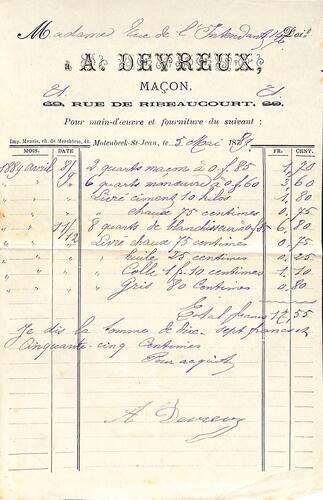 Madame Rue de l'Intendant 142 Doit
à A. DEVREUX,
MAÇON.
29, RUE DE RIBEAUCOURT, 29,
Pour main-d'œuvre et fourniture du suivant :
Imp. Meuris, ch. de Merchtem, 41.
Molenbeek-St-Jean, le 5 Mai 1889
MOIS. DATE FR. CENT.
1889 avril 8/9 2 quarts maçon à 0 f. 85 1,70
" " 6 quarts manœuvre à 0 f. 60 3,60
" " Livré ciment 10 kilos 1,80
" " " chaux 75 centimes 0,75
" 11/12 8 quarts de blanchisseur à 0 f 85 6,80
" " Livré chaux 75 centimes 0,75
" " " huile 25 centimes 0,25
" " " Colle 1 f. 10 centimes 1,10
" " " Gris 80 Centimes 0,80
Total francs 17,55
Je dis la somme de Dix-sept francs et
Cinquante-cinq Centimes
Pour acquit
A Devreux